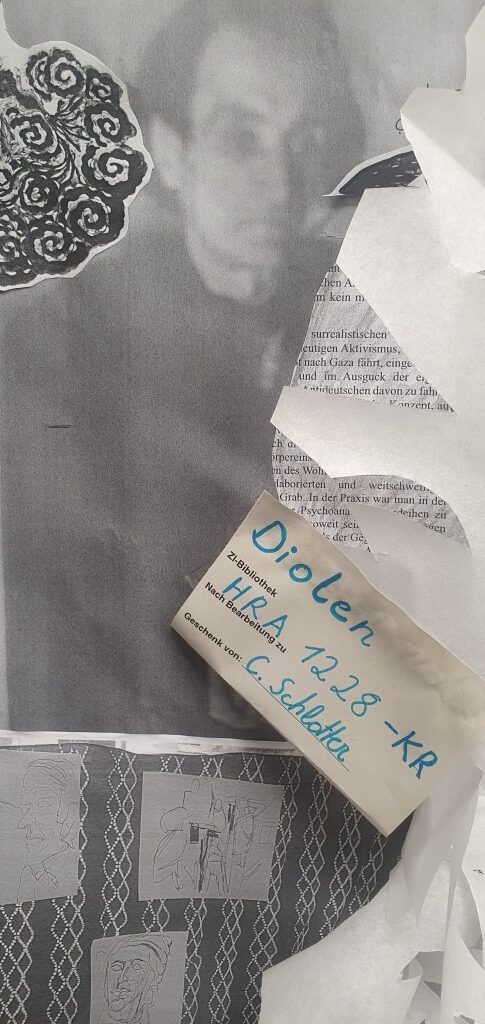 chen A
m kein m
surrealistischen
eutigen Aktivismus,
t nach Gaza fährt, einge
und im Ausguck der
Antideutschen davon zu fah
Konzept, au
en des Woh
laborierten und weitschwei
Grab. In der Praxis war man in de
Psychoana deihen zu
soweit sei
Diolen
ZI-Bibliothek
HRA 1228-KR
Nach Bearbeitung zu
Geschenk von: C. Schlotter